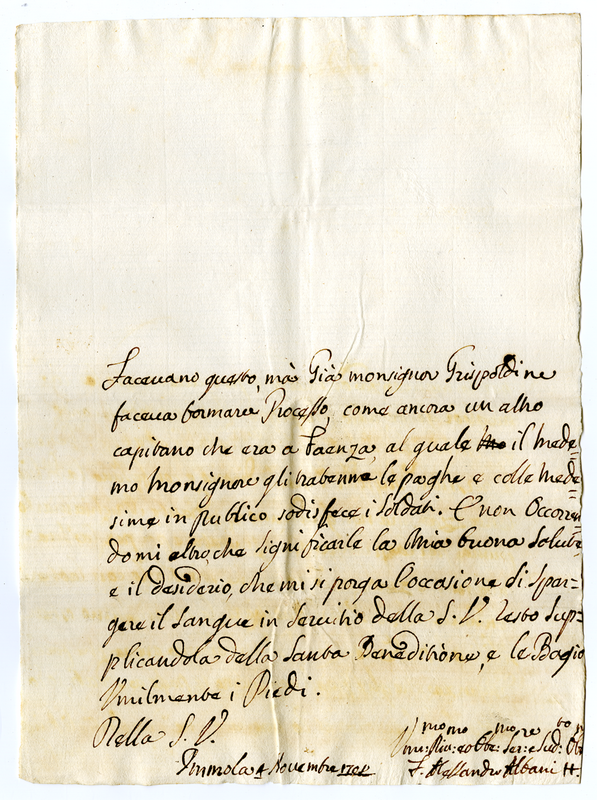 Facevano questo, mà Già monsignor Grispoldi ne
faceva formare Processo, come ancora un altro
capitano che era a Faenza, al quale il Mede=
mo Monsignore gli trattenne le paghe e colle Mede=
sime in publico sodisfece i soldati. E non Occorren
domi altro, che significarle la Mia buona Salute
e il desiderio, che mi si porga l'occasione di Spar=
gere il Sangue in Servitio della S. V. resto Sup=
plicandola della Santa Beneditione, e le Bagio
Umilmente i Piedi.
Della S. V.
Immola 4 Novembre
F. Alessandro Albani